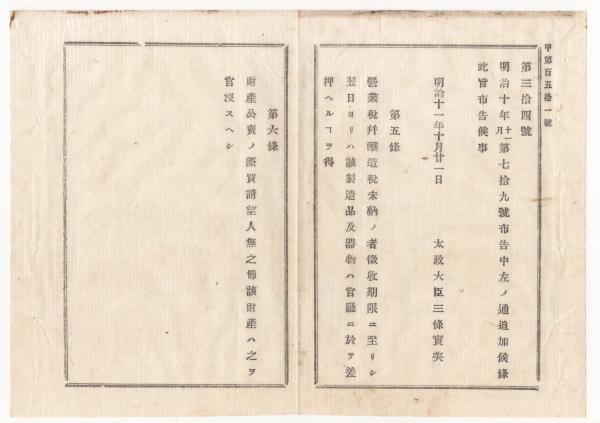 甲第百五拾一號
第三拾四號
明治十年十一月第七拾九號布告中左ノ通追加候條
此旨布告候事
明治十一年十月廿一日　太政大臣三條實美
第五條
營業稅幷釀造稅未納ノ者徵收期限ニ至リシ
翌日ヨリハ該製造品及器物ハ官廳ニ於テ差
押ヘルヿヲ得
第六條
財產公賣ノ際買請望人無之節該財產ハ之ヲ
官沒スヘシ